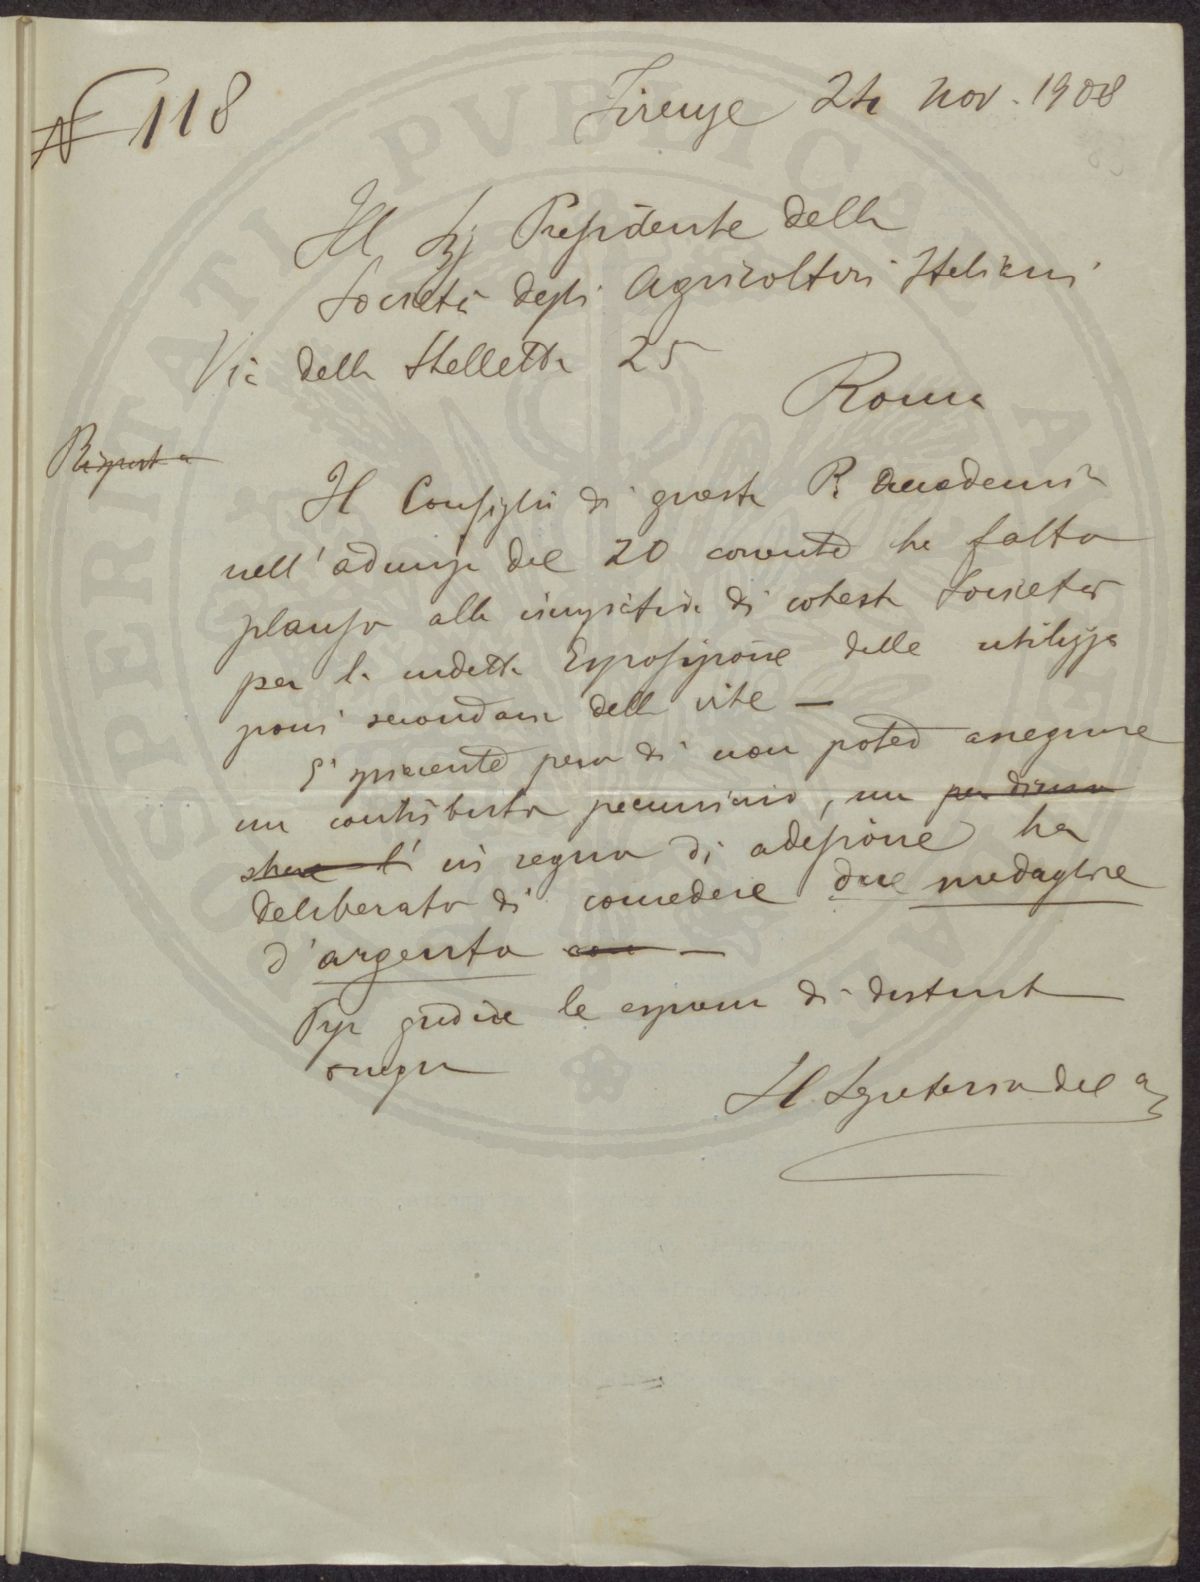 N 118
Firenze 24 Nov. 1908
Ill Sig Presidente della
Società degli Agricoltori Italiani
Via della Stelletta 25
Roma
Risposta
Il Consiglio di questa R. Accademia
nell'adunza del 20 corrente ha fatto
plauso alla iniziativa di cotesta Società
per la indetta Esposizione delle utilizza
zioni secondarie della vite —
Spiacente però di non poter assegnare
un contributo pecuniario, ma per dimo
strare l' in segno di adesione ha
deliberato di concedere due medaglie
d'argento con —
Si gradire le espressioni di distinta
ossequi
Il Segretario del
PVBLICA